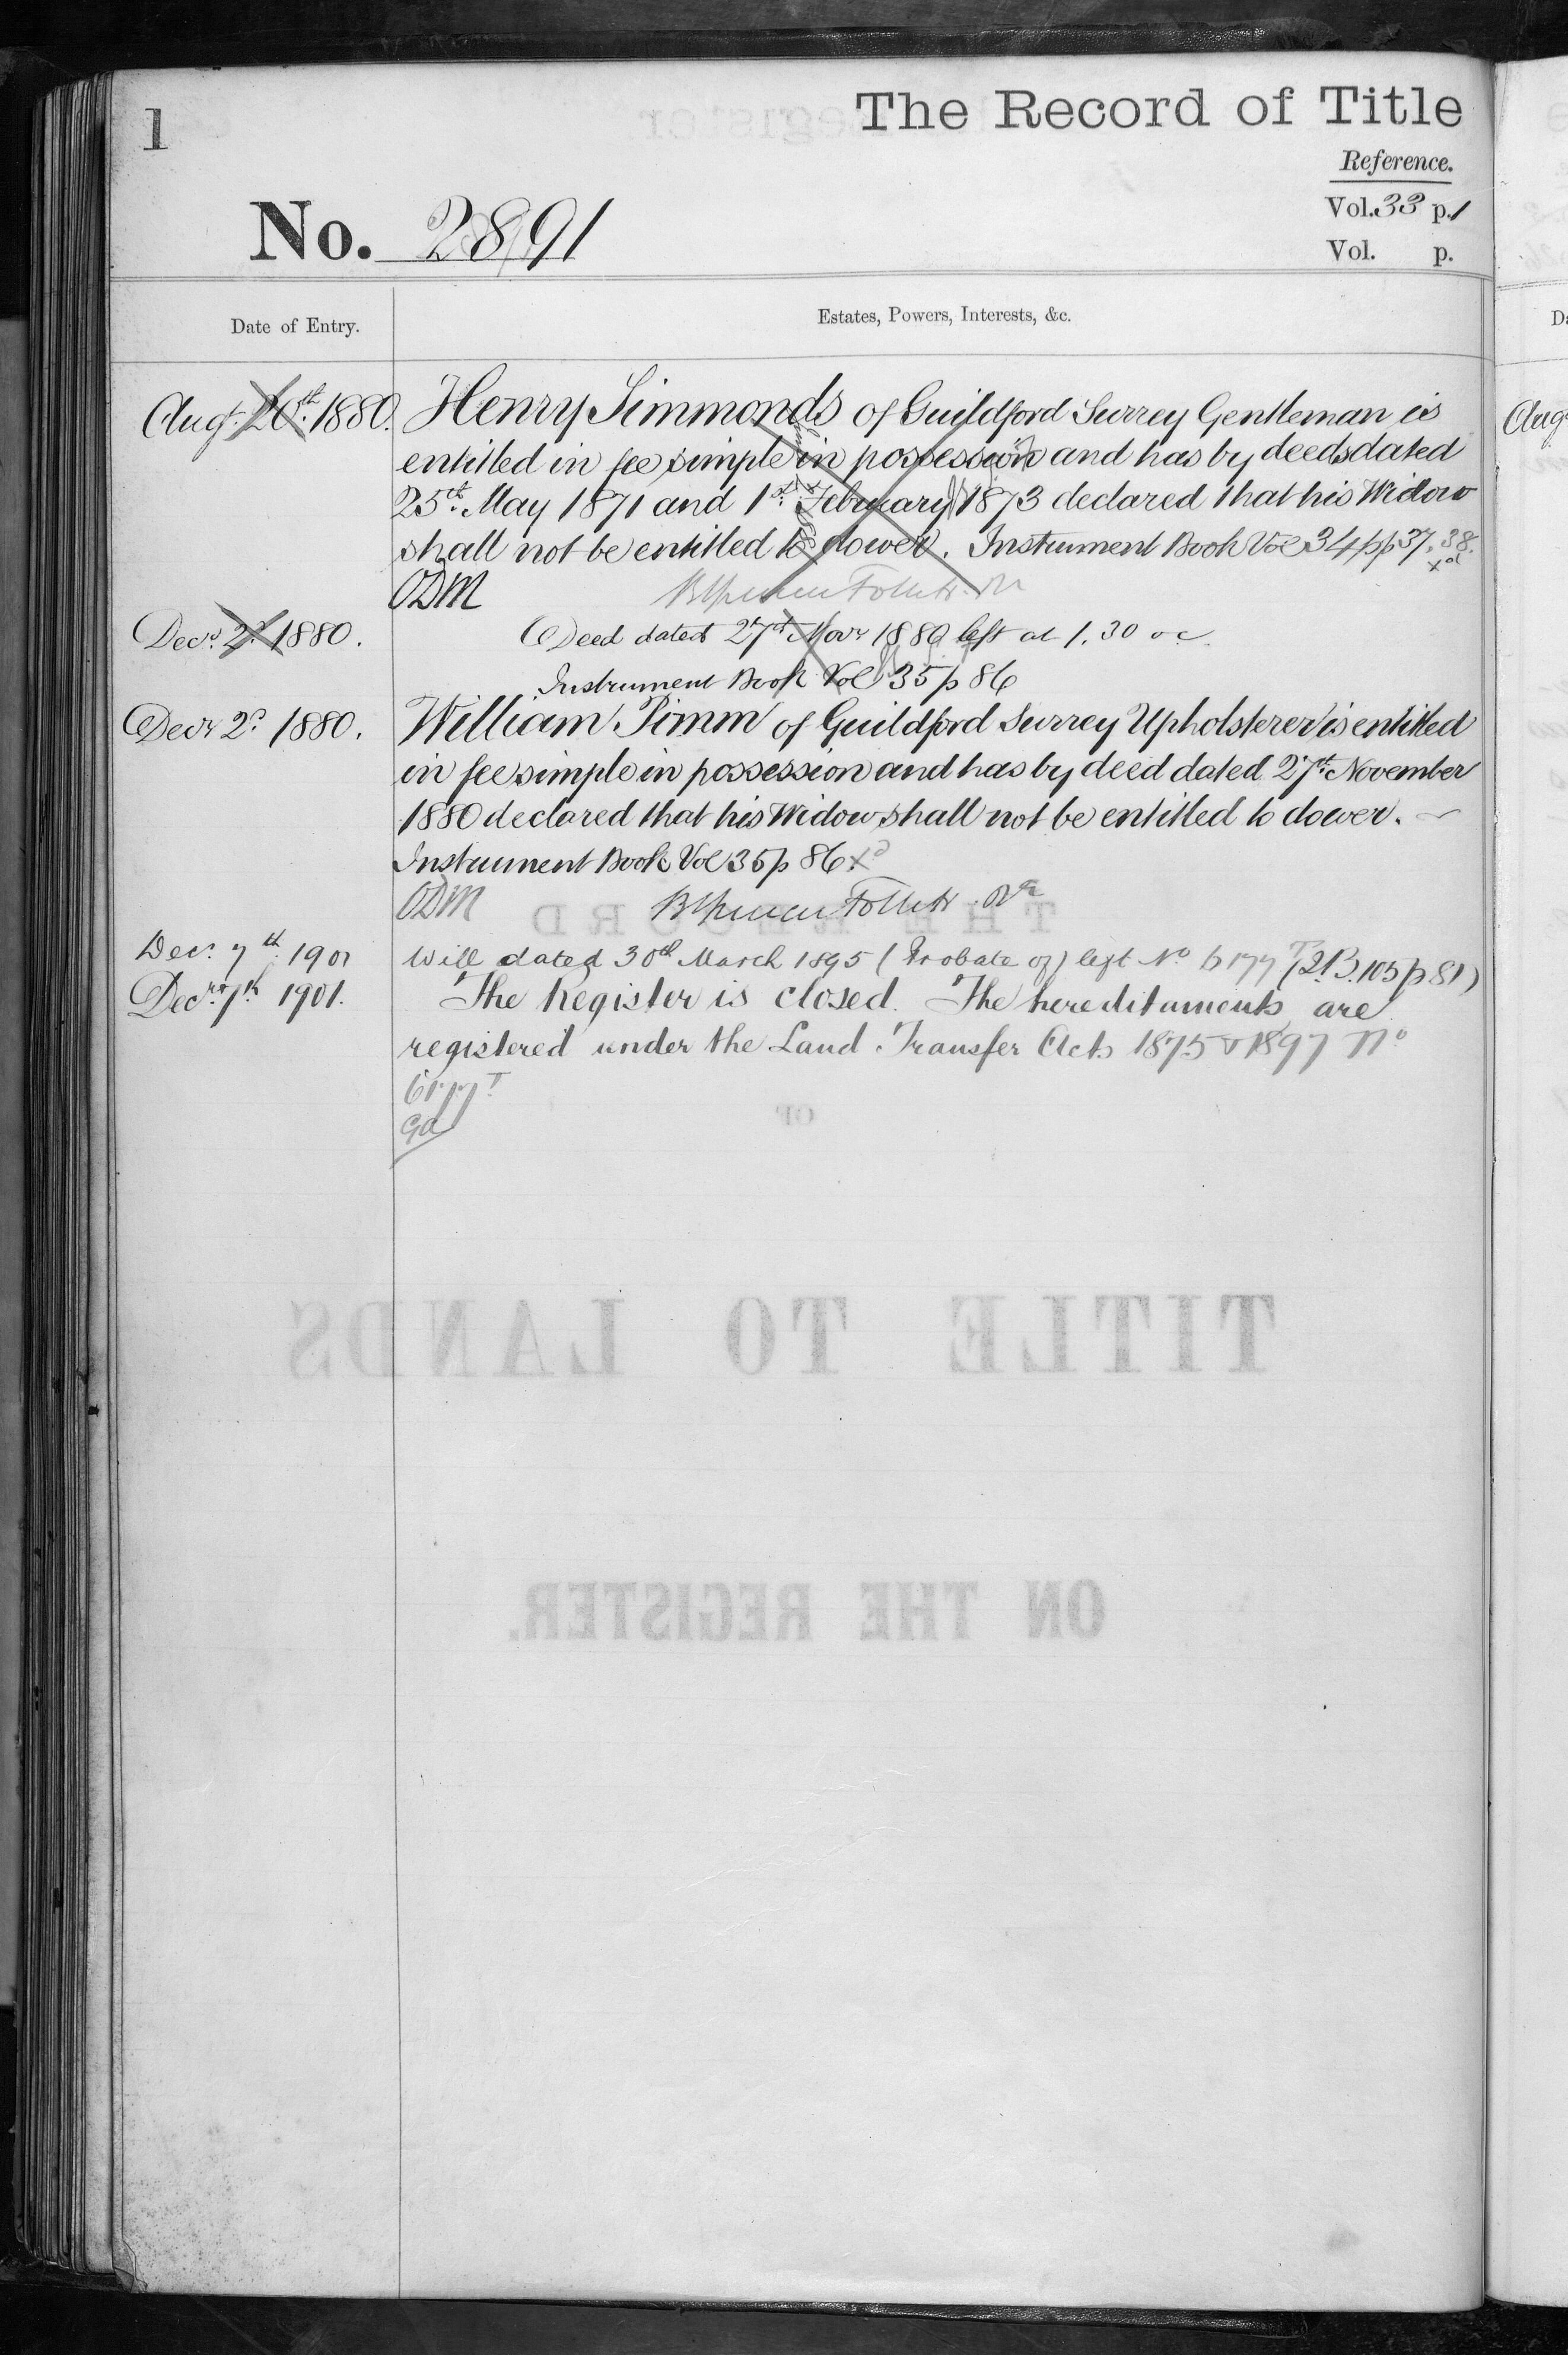 1
The Record of Title
Reference.
No. 2891
Vol. 33 p. 1
Vol. p.
Date of Entry.
Estates, Powers, Interests, &c.
Augt. 20th. 1880. Henry Simmonds of Guildford Surrey Gentleman is
entitled in fee simple in possession and has by deeds dated
25th. May 1871 and 1st. February 1873 declared that his Widow
shall not be entitled to dower. Instrument Book Vol 34 pp 37. 38.
xd
ODM
Decr. 2d. 1880. Deed dated 27th Novr 1880 left at 1.30 oc.
Instrument Book Vol 35 p 86
Decr 2d. 1880. William Pimm of Guildford Surrey Upholsterer is entitled
in fee simple in possession and has by deed dated 27th. November
1880 declared that his Widow shall not be entitled to dower.
Instrument Book Vol 35 p 86 xd
ODM
Decr. 7th. 1901 Will dated 30th March 1895 (Probate of) left No. 6177 T (2B.105 p 81)
Decr. 7th 1901. The Register is closed. The hereditaments are
registered under the Land Transfer Acts 1875 & 1897 No
6177 T
THE RECORD
OF
TITLE TO LANDS
ON THE REGISTER.
Aug